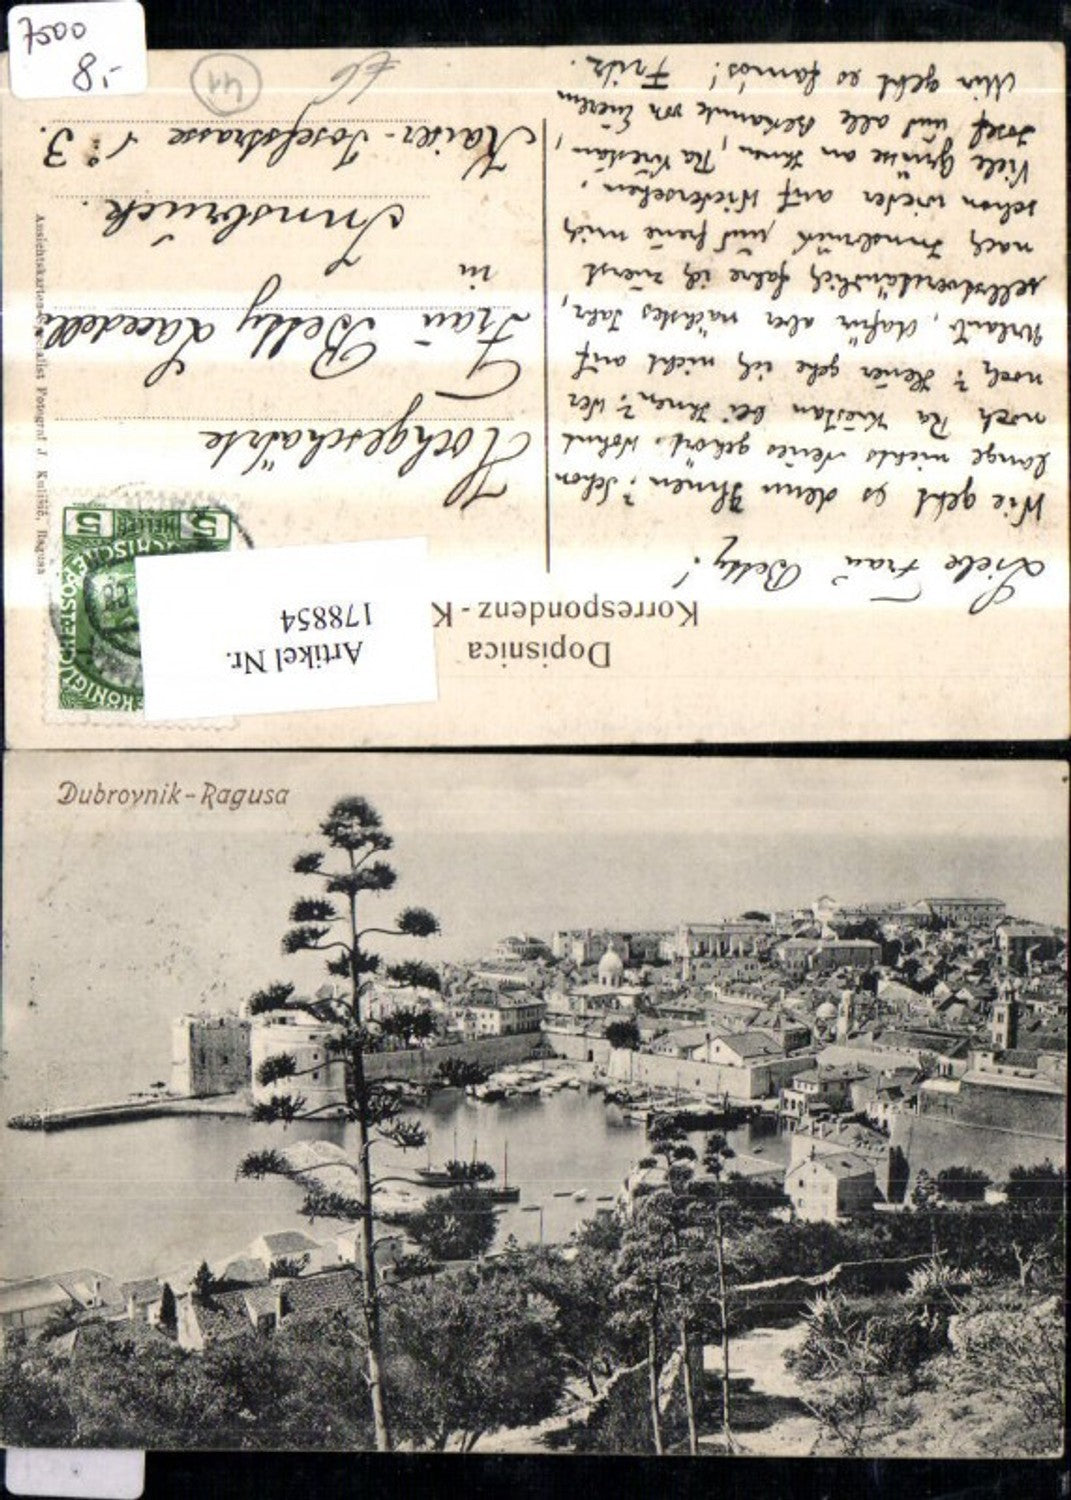 7500
8.-
41
Dopisnica
Korrespondenz - K
Artikel Nr.
178854
Liebe Frau Betty!
Wie geht es denn Ihnen? Schon
lange nichts neues gehört. Wohnt
noch Ra Kristan bei Ihnen? Wer
noch? Heuer gehe ich nicht auf
Urlaub, dafür aber nächstes Jahr,
selbstverständlich fahre ich zuerst
nach Innsbruck und freue mich
schon wieder auf Wiedersehen.
Viele Grüsse an Ihnen, Ra Kristan,
Josef und alle Bekannte von Euerem
Mir geht es famos! Fritz.
Hochgeschätzte
Frau Betty
in
Innsbruck.
Kaiser-Josefstrasse No 3.
KÖNIGL
POST
5 HELLER 5
Ansichtskarten-Spezialist Fotograf J. Kulišić, Ragusa
Dubrovnik-Ragusa